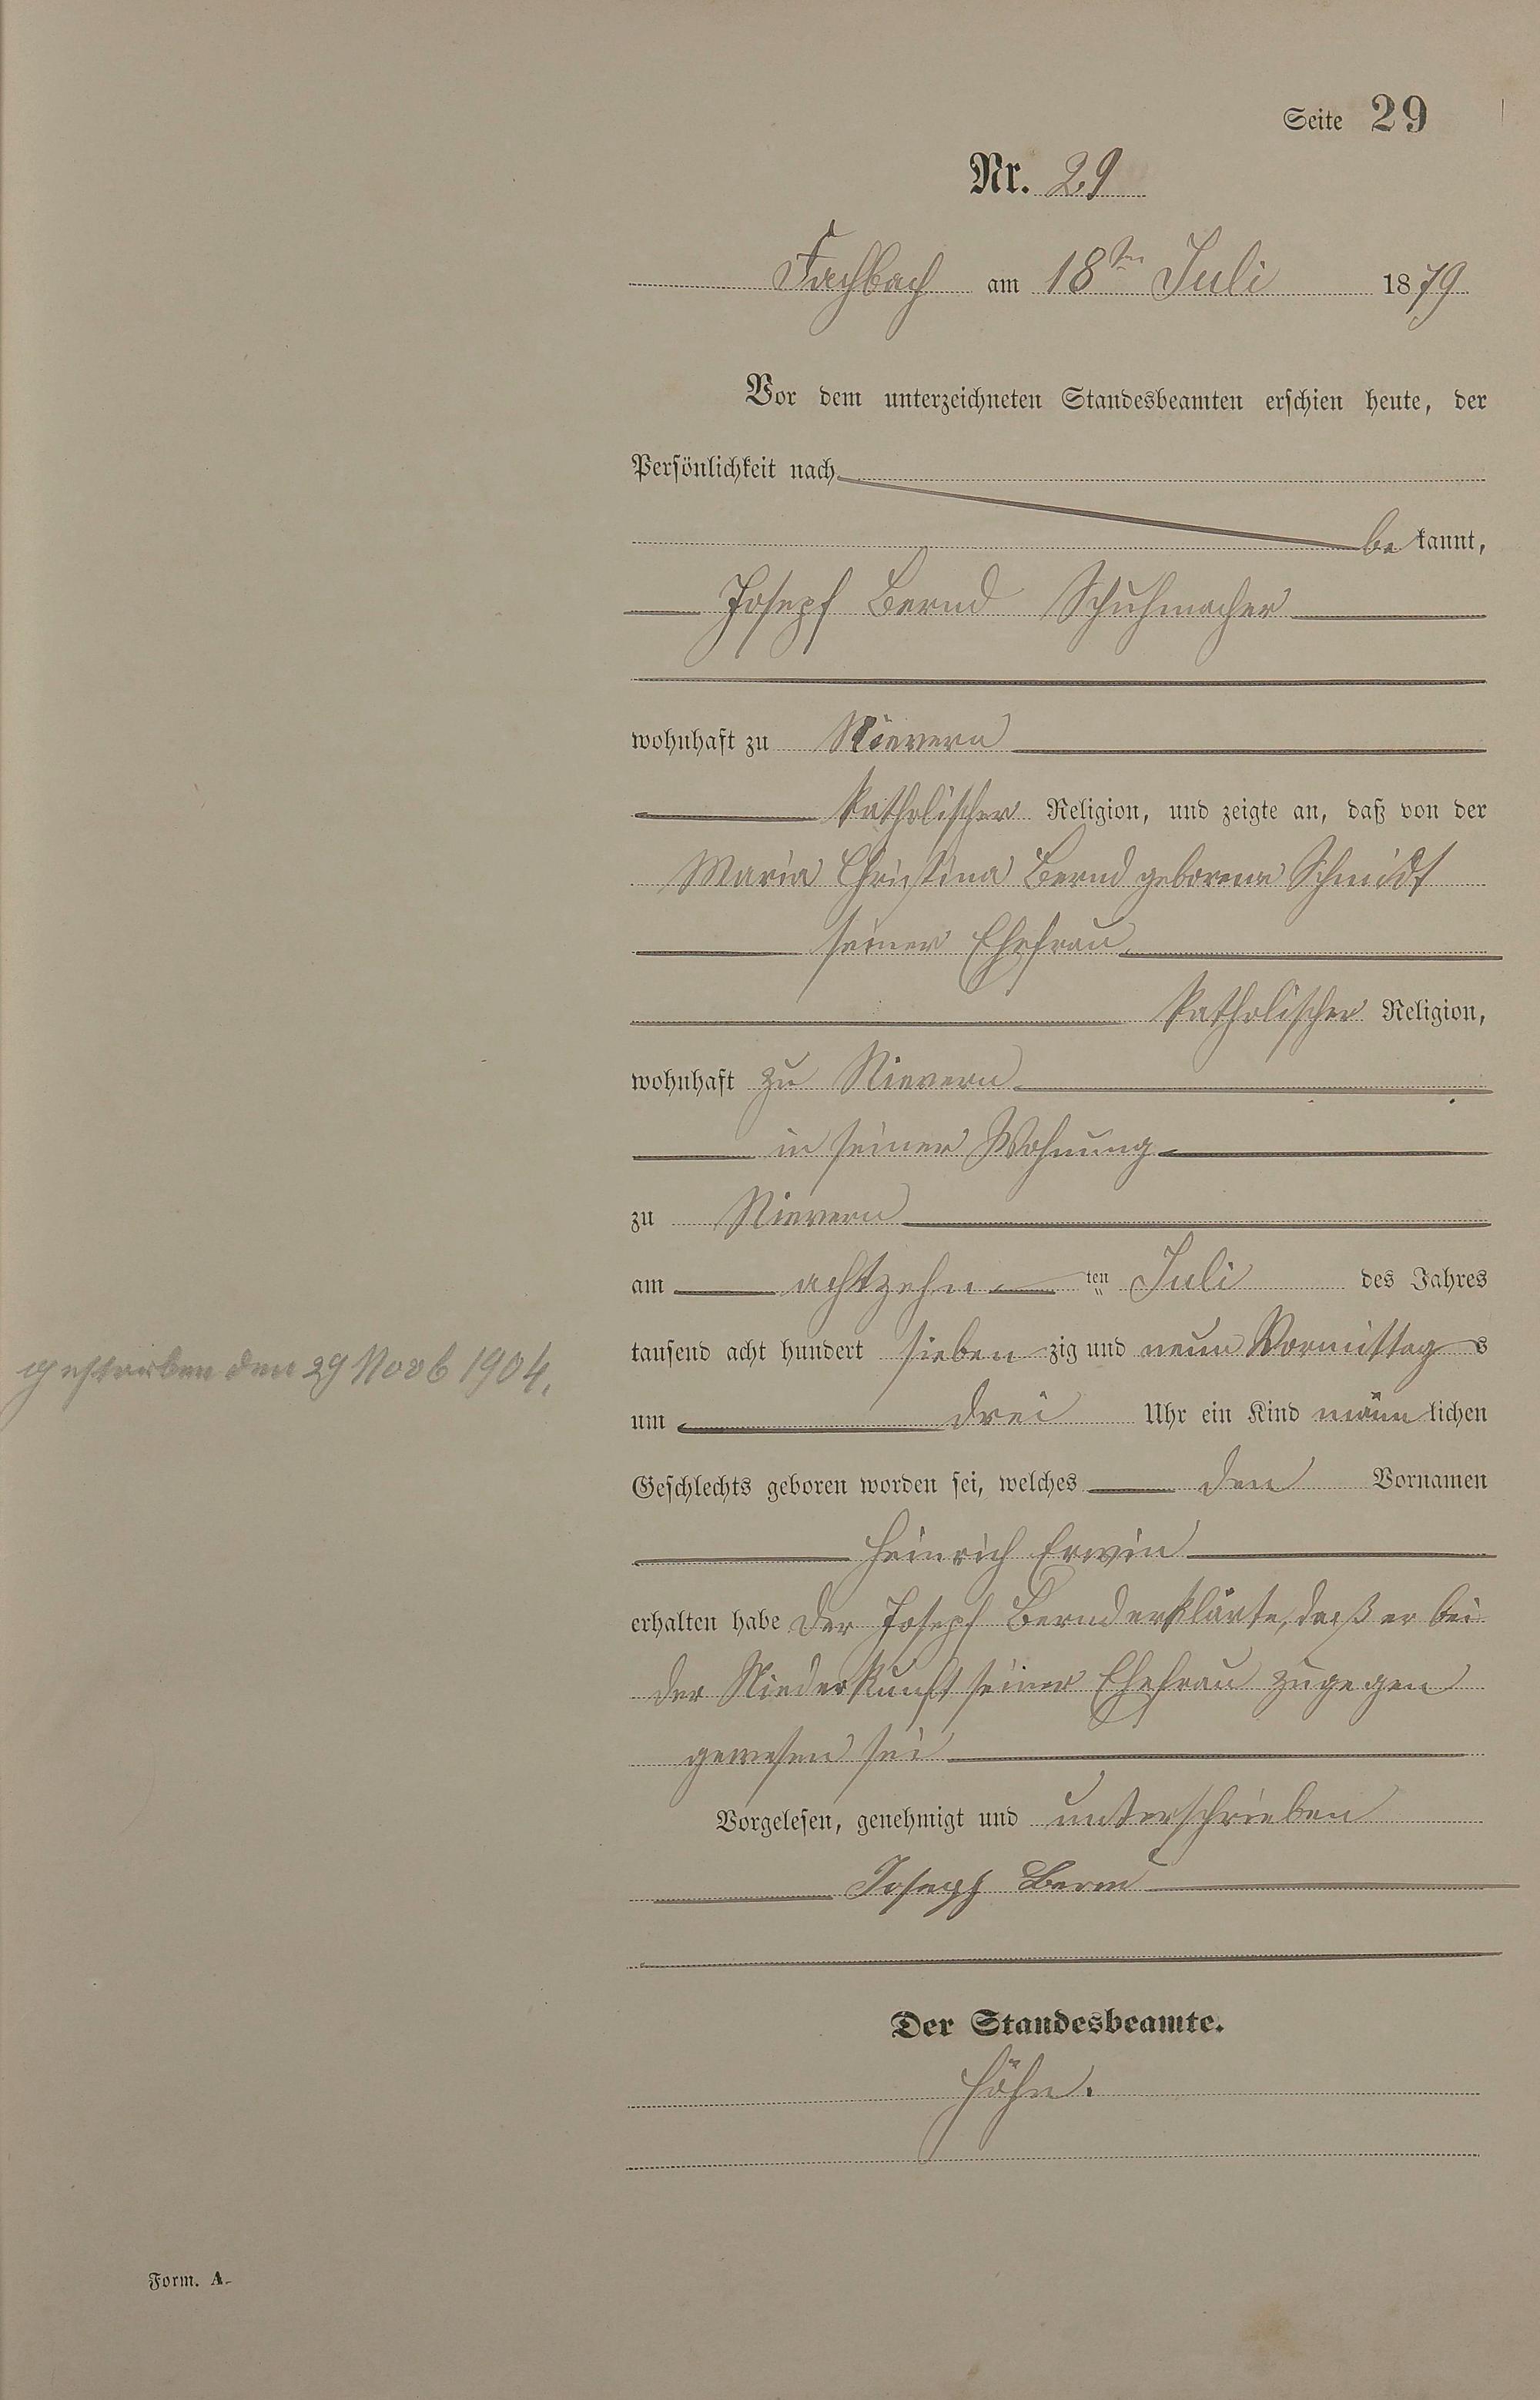 Seite 29
Nr. 29
Fachbach am 18ten Juli 1879
Vor dem unterzeichneten Standesbeamten erschien heute, der
Persönlichkeit nach
bekannt,
Joseph Bernd Schuhmacher
wohnhaft zu Nievern
katholischer Religion, und zeigte an, daß von der
Maria Christina Bernd geborene Schmidt
seiner Ehefrau
katholischer Religion,
wohnhaft zu Nievern
in seiner Wohnung
zu Nievern
am achtzehn ten Juli des Jahres
tausend acht hundert siebenzig und neun Vormittags
gestorben den 29 Novb 1904.
um drei Uhr ein Kind männlichen
Geschlechts geboren worden sei, welches den Vornamen
Heinrich Erwin
erhalten habe der Joseph Bernd erklärte, daß er bei
der Niederkunft seiner Ehefrau zugegen
gewesen sei
Vorgelesen, genehmigt und unterschrieben
Joseph Bernd
Der Standesbeamte.
Höhn.
Form. A.